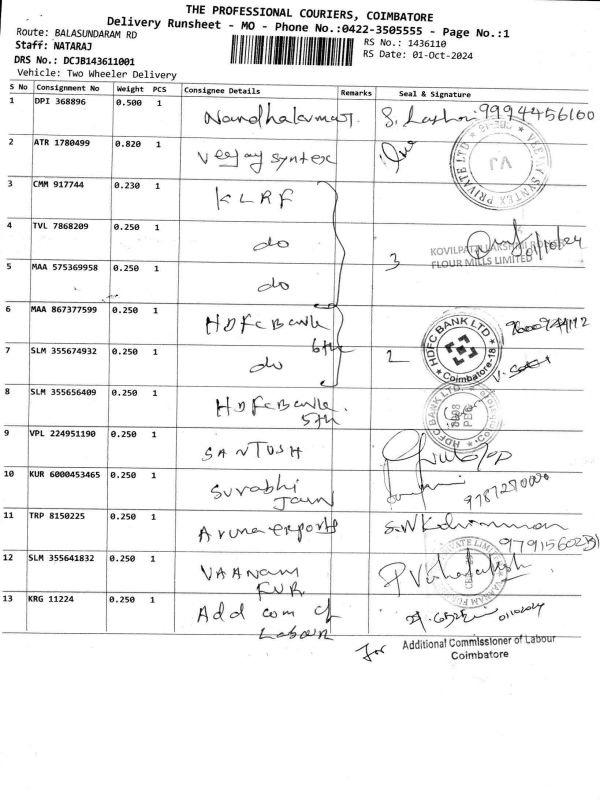 THE PROFESSIONAL COURIERS, COIMBATORE
Delivery Runsheet - MO - Phone No.:0422-3505555 - Page No.:1
Route: BALASUNDARAM RD
RS No.: 1436110
Staff: NATARAJ
RS Date: 01-Oct-2024
DRS No.: DCJB143611001
Vehicle: Two Wheeler Delivery
S No Consignment No Weight PCS Consignee Details Remarks Seal & Signature
1 DPI 368896 0.500 1 Nandhakumar 9994456160
2 ATR 1780499 0.820 1 Veejay syntex
VEEJAY SYNTEX PRIVATE LTD
3 CMM 917744 0.230 1 KLRF
4 TVL 7868209 0.250 1 do 01/10/24
KOVILPATTI LAKSHMI ROLLER
FLOUR MILLS LIMITED
3
5 MAA 575369958 0.250 1 do
6 MAA 867377599 0.250 1 HDFC Bank
6th
HDFC BANK LTD
Coimbatore-18
7 SLM 355674932 0.250 1 do 2
8 SLM 355656409 0.250 1 HDFC Bank
5th
HDFC BANK LTD.
9 VPL 224951190 0.250 1 SANTOSH
10 KUR 6000453465 0.250 1 Surabhi
Jain
11 TRP 8150225 0.250 1 Aruna exports
12 SLM 355641832 0.250 1 VAANAM
FUR
13 KRG 11224 0.250 1 Add com of
Labour
01102024
for Additional Commissioner of Labour
Coimbatore